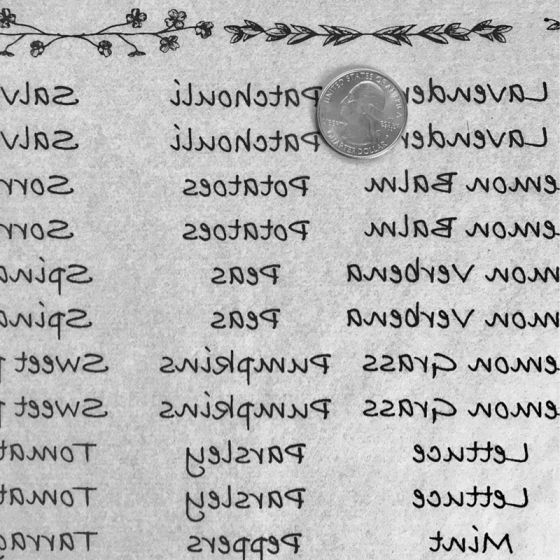 Lavender Patchouli Salv
Lavender Patchouli Salv
emon Balm Potatoes Sorr
emon Balm Potatoes Sorr
emon Verbena Peas Spina
emon Verbena Peas Spina
emon Grass Pumpkins Sweet
emon Grass Pumpkins Sweet
Lettuce Parsley Tomat
Lettuce Parsley Tomat
Mint Peppers Tarrag
UNITED STATES OF AMERICA
LIBERTY
QUARTER DOLLAR